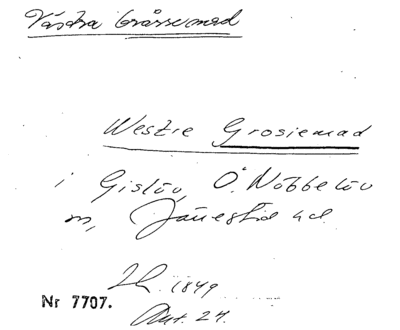 Västra Gråssemad
Westre Grosiemad
i Gislöv, Ö. Nöbbelöv
m, Järrestad hd
Lh. 1849
Nr 7707.
Akt. 24.